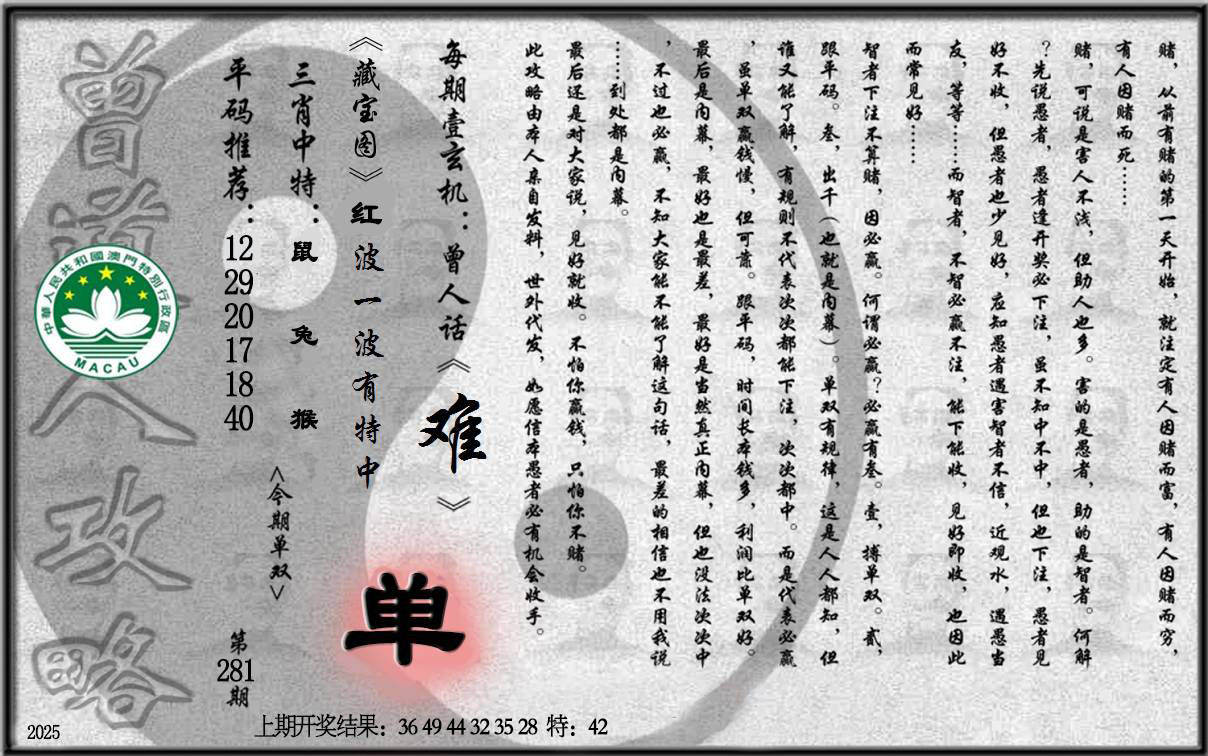 赌，从前有赌的第一天开始，就注定有人因赌而富，有人因赌而穷，
有人因赌而死……
赌，可说是害人不浅，但助人也多。害的是愚者，助的是智者。何解
？先说愚者，愚者逢开奖必下注，虽不知中不中，但也下注，愚者见
好不收，但愚者也少见好，应知愚者遇害智者不信，近观水，遇愚当
友，等等……而智者，不智必赢不注，能下能收，见好即收，也因此
而常见好……
智者下注不算赌，因必赢。何谓必赢？必赢有叁。壹，搏单双。贰，
跟平码。叁，出千（也就是内幕）。单双有规律，这是人人都知，但
谁又能了解，有规则不代表次次都能下注，次次都中。而是代表必赢
，虽单双赢钱慢，但可靠。跟平码，时间长本钱多，利润比单双好。
最后是内幕，最好也是最差，最好是当然真正内幕，但也没法次次中
，不过也必赢，不知大家能不能了解这句话，最差的相信也不用我说
……到处都是内幕。
最后还是对大家说，见好就收。不怕你赢钱，只怕你不赌。
此攻略由本人亲自发料，世外代发，如愿信本愚者必有机会收手。
每期壹玄机：曾人话《难》
《藏宝图》红波一波有特中
单
三肖中特：鼠 兔 猴
<今期单双>
平码推荐：12 29 20 17 18 40
第281期
曾道人攻略
中華人民共和國澳門特別行政區
MACAU
2025
上期开奖结果：36 49 44 32 35 28 特：42